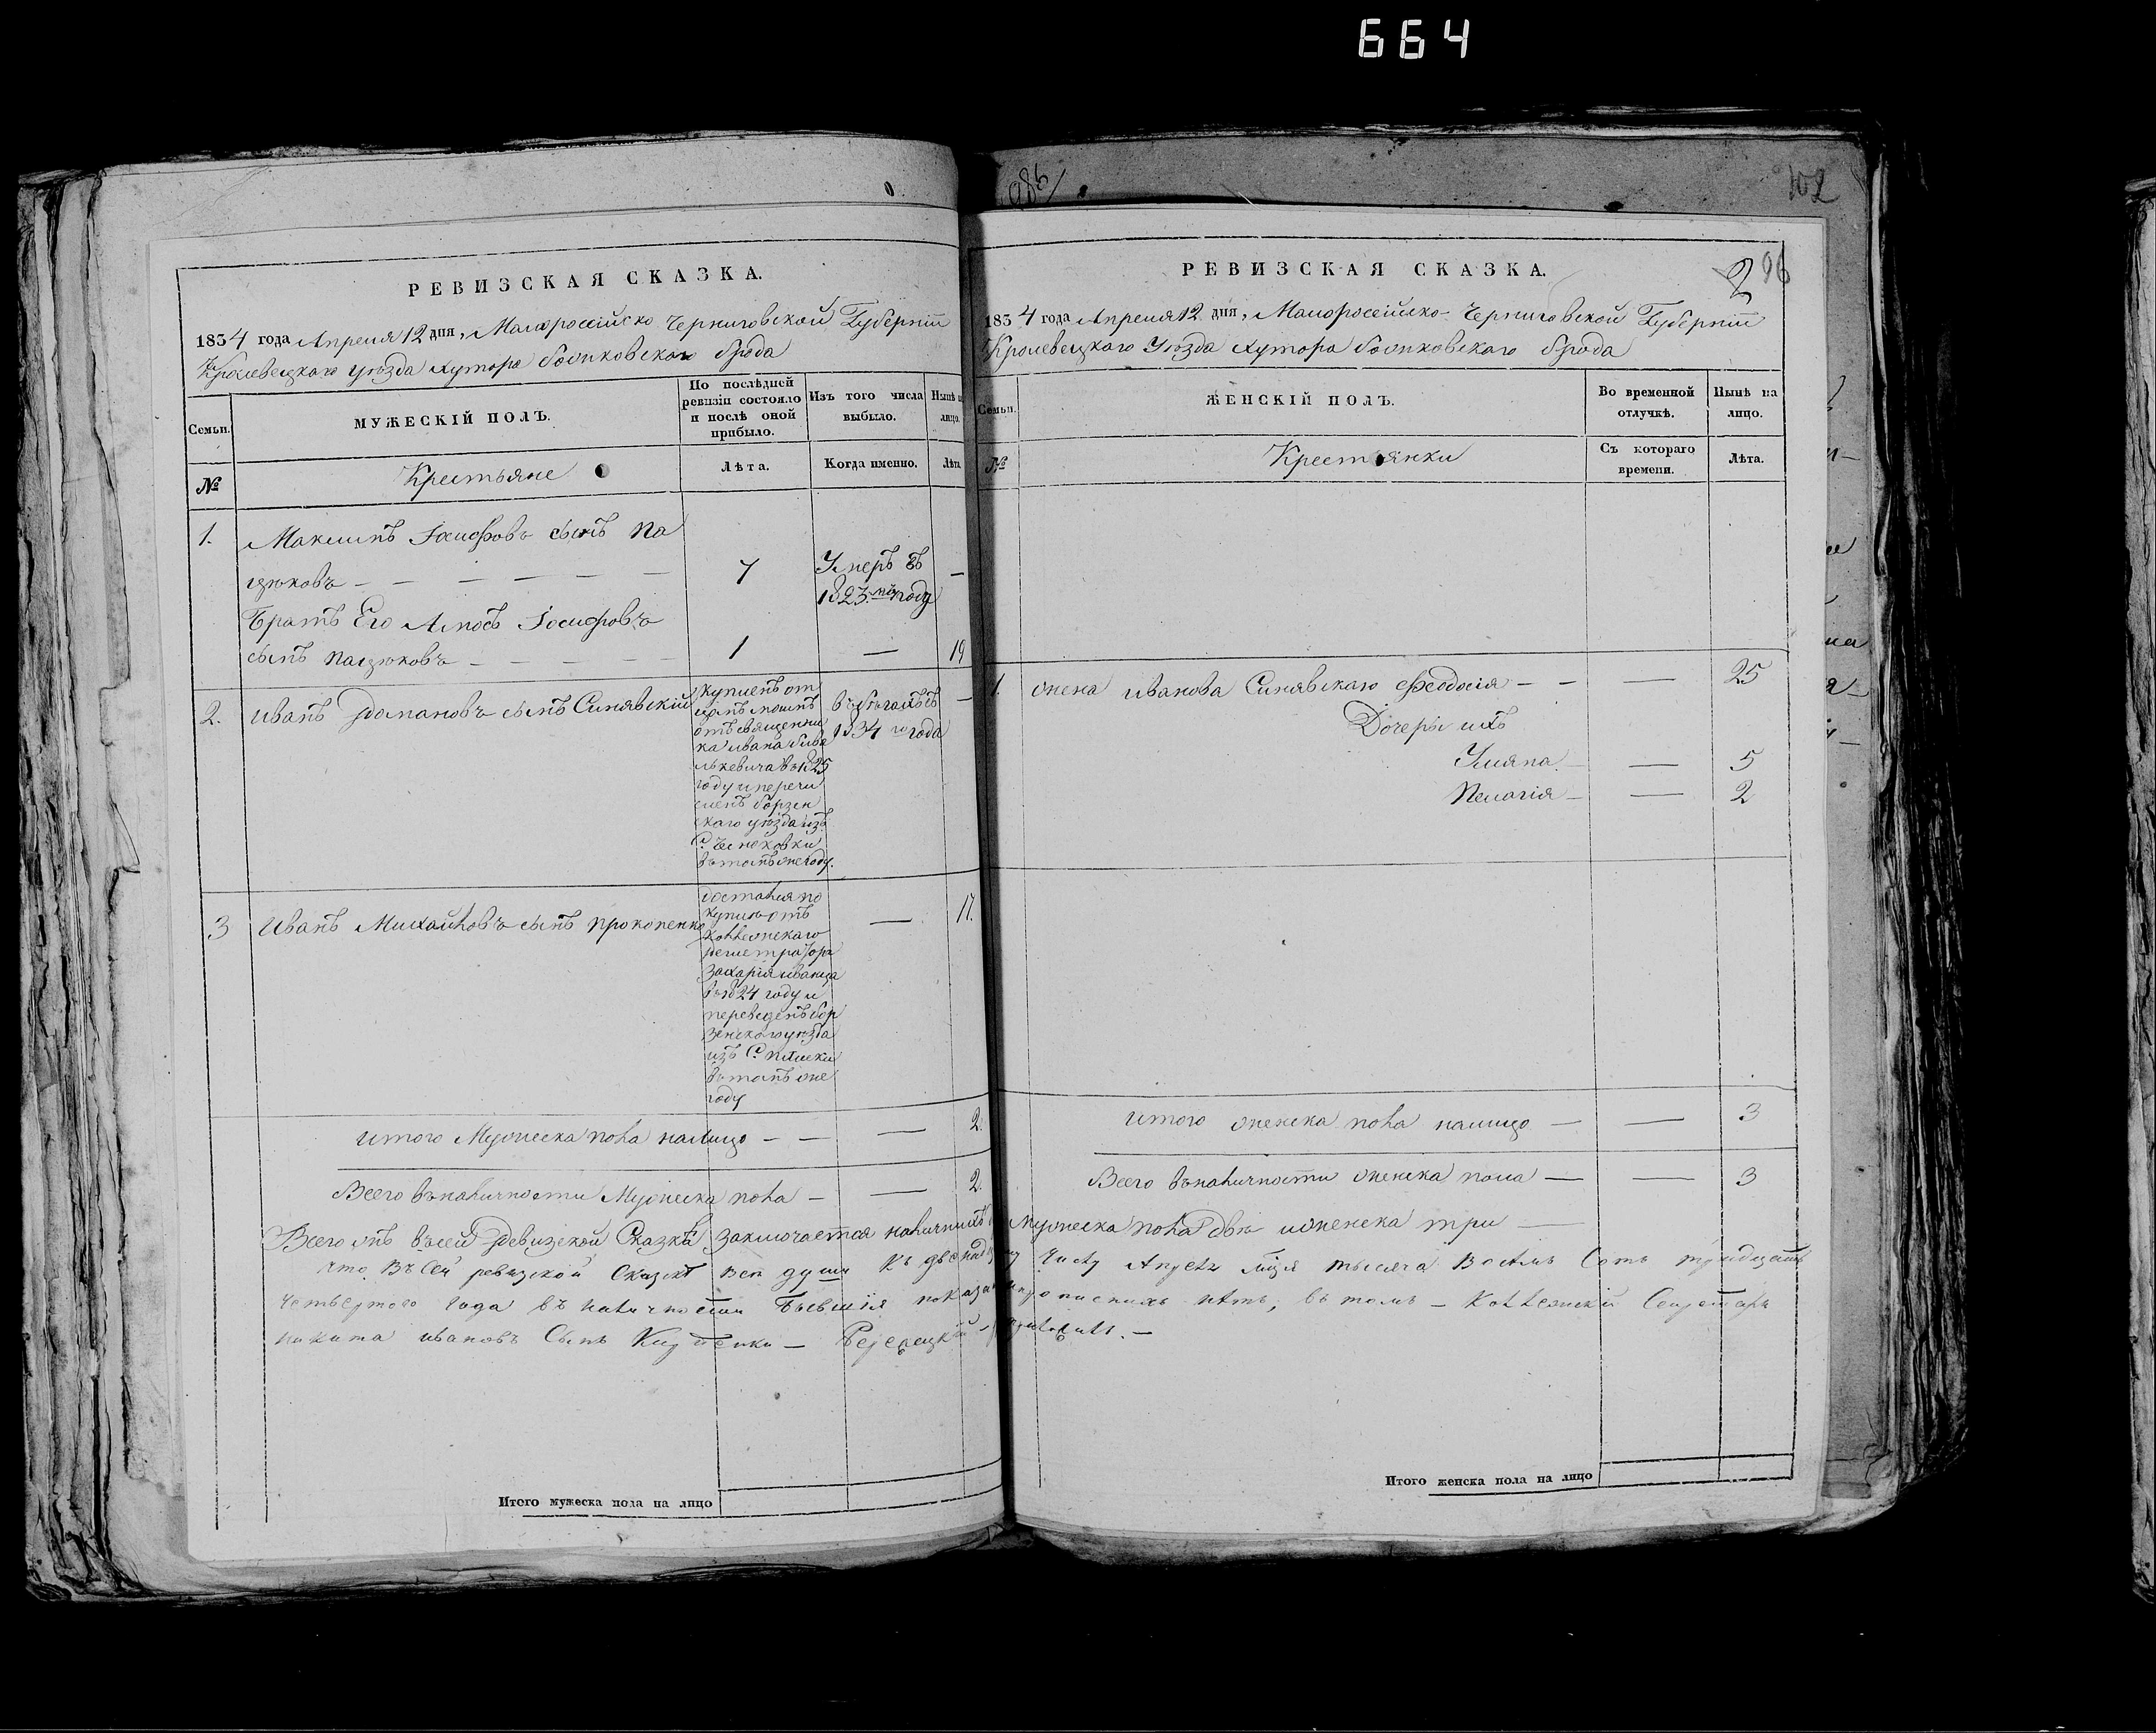 664
102
РЕВИЗСКАЯ СКАЗКА.
1834 года Апреля 12 дня, Малороссійско Черниговской Губерніи
Кролевецкаго уѣзда хутора брода
Семьи.
МУЖЕСКІЙ ПОЛЪ.
По послѣдней ревизіи состояло и послѣ оной прибыло.
Изъ того числа выбыло.
Нынѣ на лицо.
№
Крестьяне
Лѣта.
Когда именно.
Лѣта
1.
Максимъ Іосифовъ сынъ Па
цюковъ — — — — —
7
Умеръ въ
1823.мъ году
—
Братъ Его Амосъ Іосифовъ
сынъ пацюковъ — — — —
1
—
19
2.
иванъ романовъ сынъ Синявскій
купленъ от
отъ священни
ка ивана
въ 1825
году и перечи
сленъ борзен
скаго уѣзда изъ
С.
въ томъ же году.
въ бѣгахъ съ
1834 го года
—
3
Иванъ Михайловъ сынъ прокопенко
достался по
куплею отъ
коллежскаго
регистратора
Захарія иваница
въ 1824 году и
переведенъ бор
зенского уѣзда
изъ С. плиски
въ томъ же
году
—
17.
итого Мужеска пола налицо — —
—
2.
Всего въ наличности Мужеска пола —
—
2.
Итого мужеска пола на лицо
РЕВИЗСКАЯ СКАЗКА.
2
96
1834 года Апреля 12 дня, Малороссійско-Черниговской Губерніи
Кролевецкаго Уѣзда хутора брода
Семьи.
ЖЕНСКІЙ ПОЛЪ.
Во временной отлучкѣ.
Нынѣ на лицо.
№
Крестьянки
Съ котораго времени.
Лѣта.
1.
жена иванова Синявскаго Феодосія — —
—
25
Дочери ихъ
Уляна —
—
5
Пелагія —
—
2
итого женска пола налицо —
—
3
Всего въ наличности женска пола —
—
3
Всего въ сей ревизской Сказкѣ заключается наличныхъ мужеска пола двѣ и женска три —
что въ Сей ревизской Сказкѣ все души къ двенадцатому Числу Апреля тысяча Восемь Сотъ тридцать
четвертого года въ наличности Бывшія показаны прописныхъ нѣтъ, въ томъ — Коллежскій Секретарь
никита ивановъ Сынъ
Итого женска пола на лицо